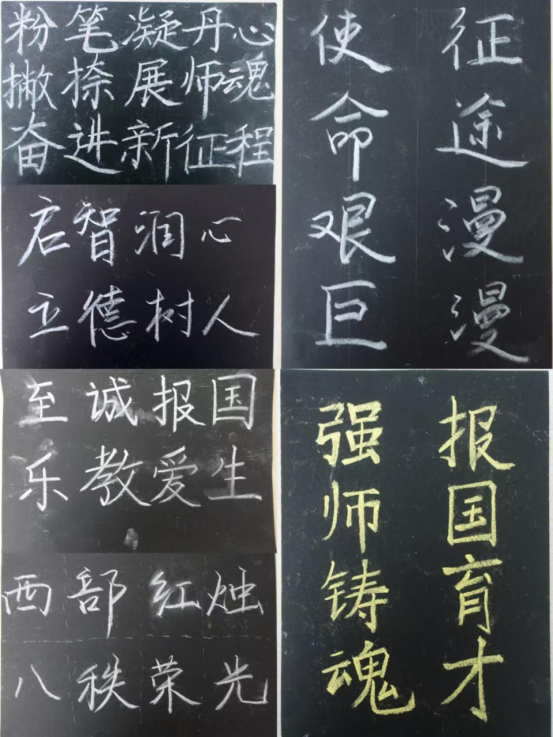 粉笔凝丹心
撇捺展师魂
奋进新征程
启智润心
立德树人
至诚报国
乐教爱生
西部红烛
八秩荣光
征途漫漫
使命艰巨
报国育才
强师铸魂